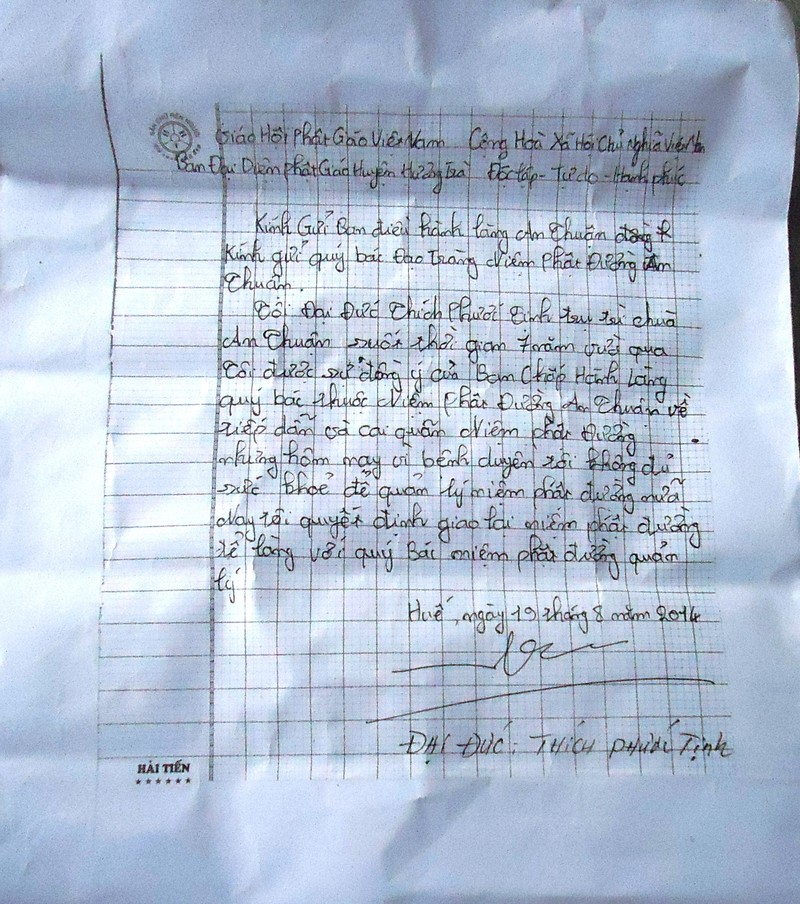 Giáo Hội Phật Giáo Việt Nam Cộng Hoà Xã Hội Chủ Nghĩa Việt Nam
Ban Đại Diện Phật Giáo Huyện Hương Trà Độc lập - Tự do - Hạnh phúc
Kính Gửi Ban điều hành làng An Thuận
Kính gửi quý bác Đạo Tràng Niệm Phật Đường An
Thuận.
Tôi Đại Đức Thích Phước Tịnh trụ trì chùa
An Thuận suốt thời gian 7 năm vừa qua
Tôi được sự đồng ý của Ban Chấp Hành Làng
quý bác thuộc Niệm Phật Đường An Thuận về
tiếp dẫn và cai quản Niệm phật Đường
nhưng hôm nay vì bệnh duyên tôi không đủ
sức khoẻ để quản lý niệm phật đường nữa
Nay tôi quyết định giao lại niệm phật đường
để làng với quý Bác niệm phật đường quản
lý
Huế, ngày 19 tháng 8 năm 2014
ĐẠI ĐỨC: THÍCH PHƯỚC TỊNH
HẢI TIẾN